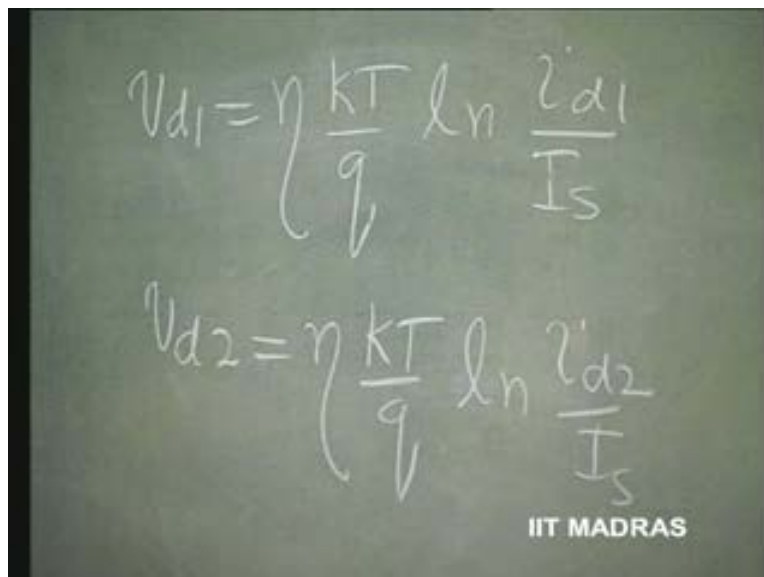 v_d1 = η kT/q ln i_d1/I_S
v_d2 = η kT/q ln i_d2/I_S
IIT MADRAS